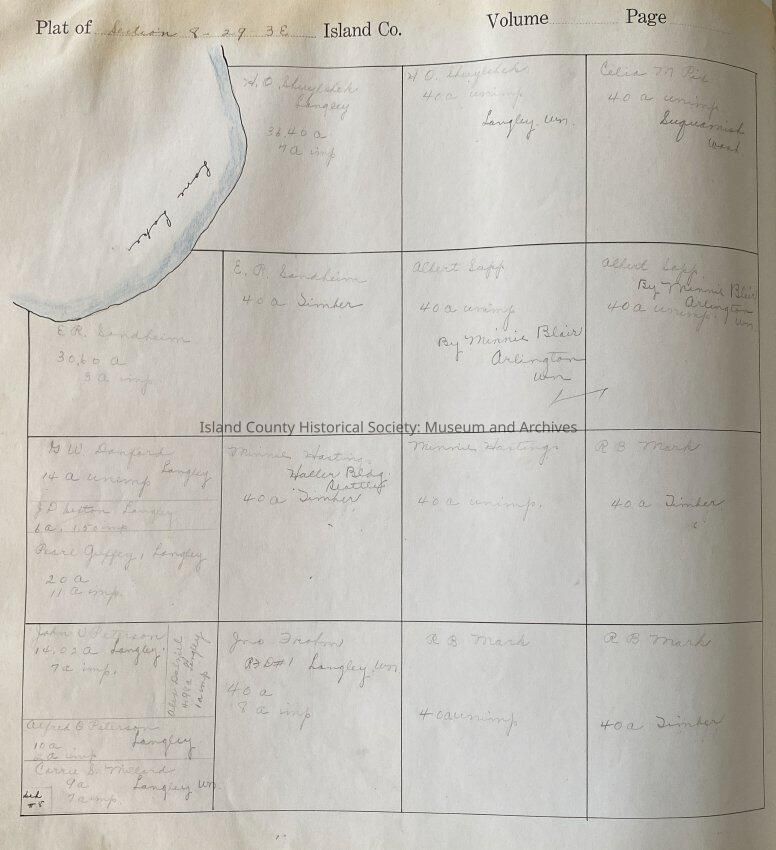 Plat of Section 8 - 29 3E Island Co. Volume Page
H. O.
Langley
36.40 a
7 a imp
H O
40 a unimp
Langley. Wn.
Celia M
40 a unimp
Suquamish
Wash
Lone Lake
E. R. Sandheim
40 a Timber
Albert Sapp
40 a unimp
By Minnie Blair
Arlington
Wn
Albert Sapp.
By Minnie Blair
Arlington
40 a unimp. Wn.
E R. Sandheim
30.60 a
3 a imp
Island County Historical Society: Museum and Archives
G W Danford
14 a unimp Langley
Langley
6 a, 1.50 imp
Pearl Guffey, Langley
20 a
11 a imp.
Minnie Hastings
Haller Bldg.
Seattle
40 a Timber
Minnie Hastings
40 a unimp.
R B Mark
40 a Timber
John Peterson
14.02 a Langley.
7 a imp.
Alex Dalgiel
4.98 a Langley
1 a imp
Jno Frohm
RFD#1 Langley, Wn
40 a
8 a imp
R B Mark
40 a unimp
R B Mark
40 a Timber
Alfred G Peterson
10 a Langley
2 a imp
Carrie S. Millard
9 a Langley Wn.
7 a imp.